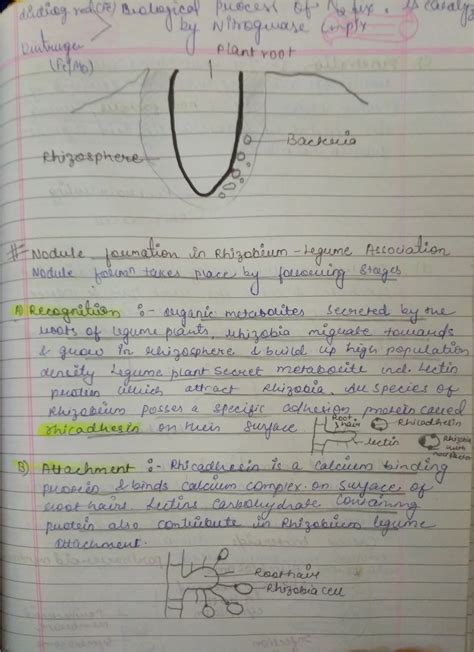 Biological Process of N2 fix. is catalyz
by Nitrogenase Complx
(Fe/Mo)
Plant root
Bacteria
Rhizosphere
# Nodule formation in Rhizobium-Legume Association
Nodule formn takes place by following stages
A) Recognition :- Organic metabolites secreted by the
roots of legume plants, rhizobia migrate towards
& grow in rhizosphere & build up high population
density Legume plant secret metabolite incl. Lectin
protein which attract Rhizobia. All species of
Rhizobium posses a specific adhesion protein called
rhicadhesin on their surface.
Root hair
Rhicadhesin
lectin
Rhizobia
with
B) Attachment :- Rhicadhesin is a calcium binding
protein & binds calcium complex on surface of
root hairs. Lectins carbohydrate containing
protein also contribute in Rhizobium legume
attachment.
Root hair
Rhizobia cell